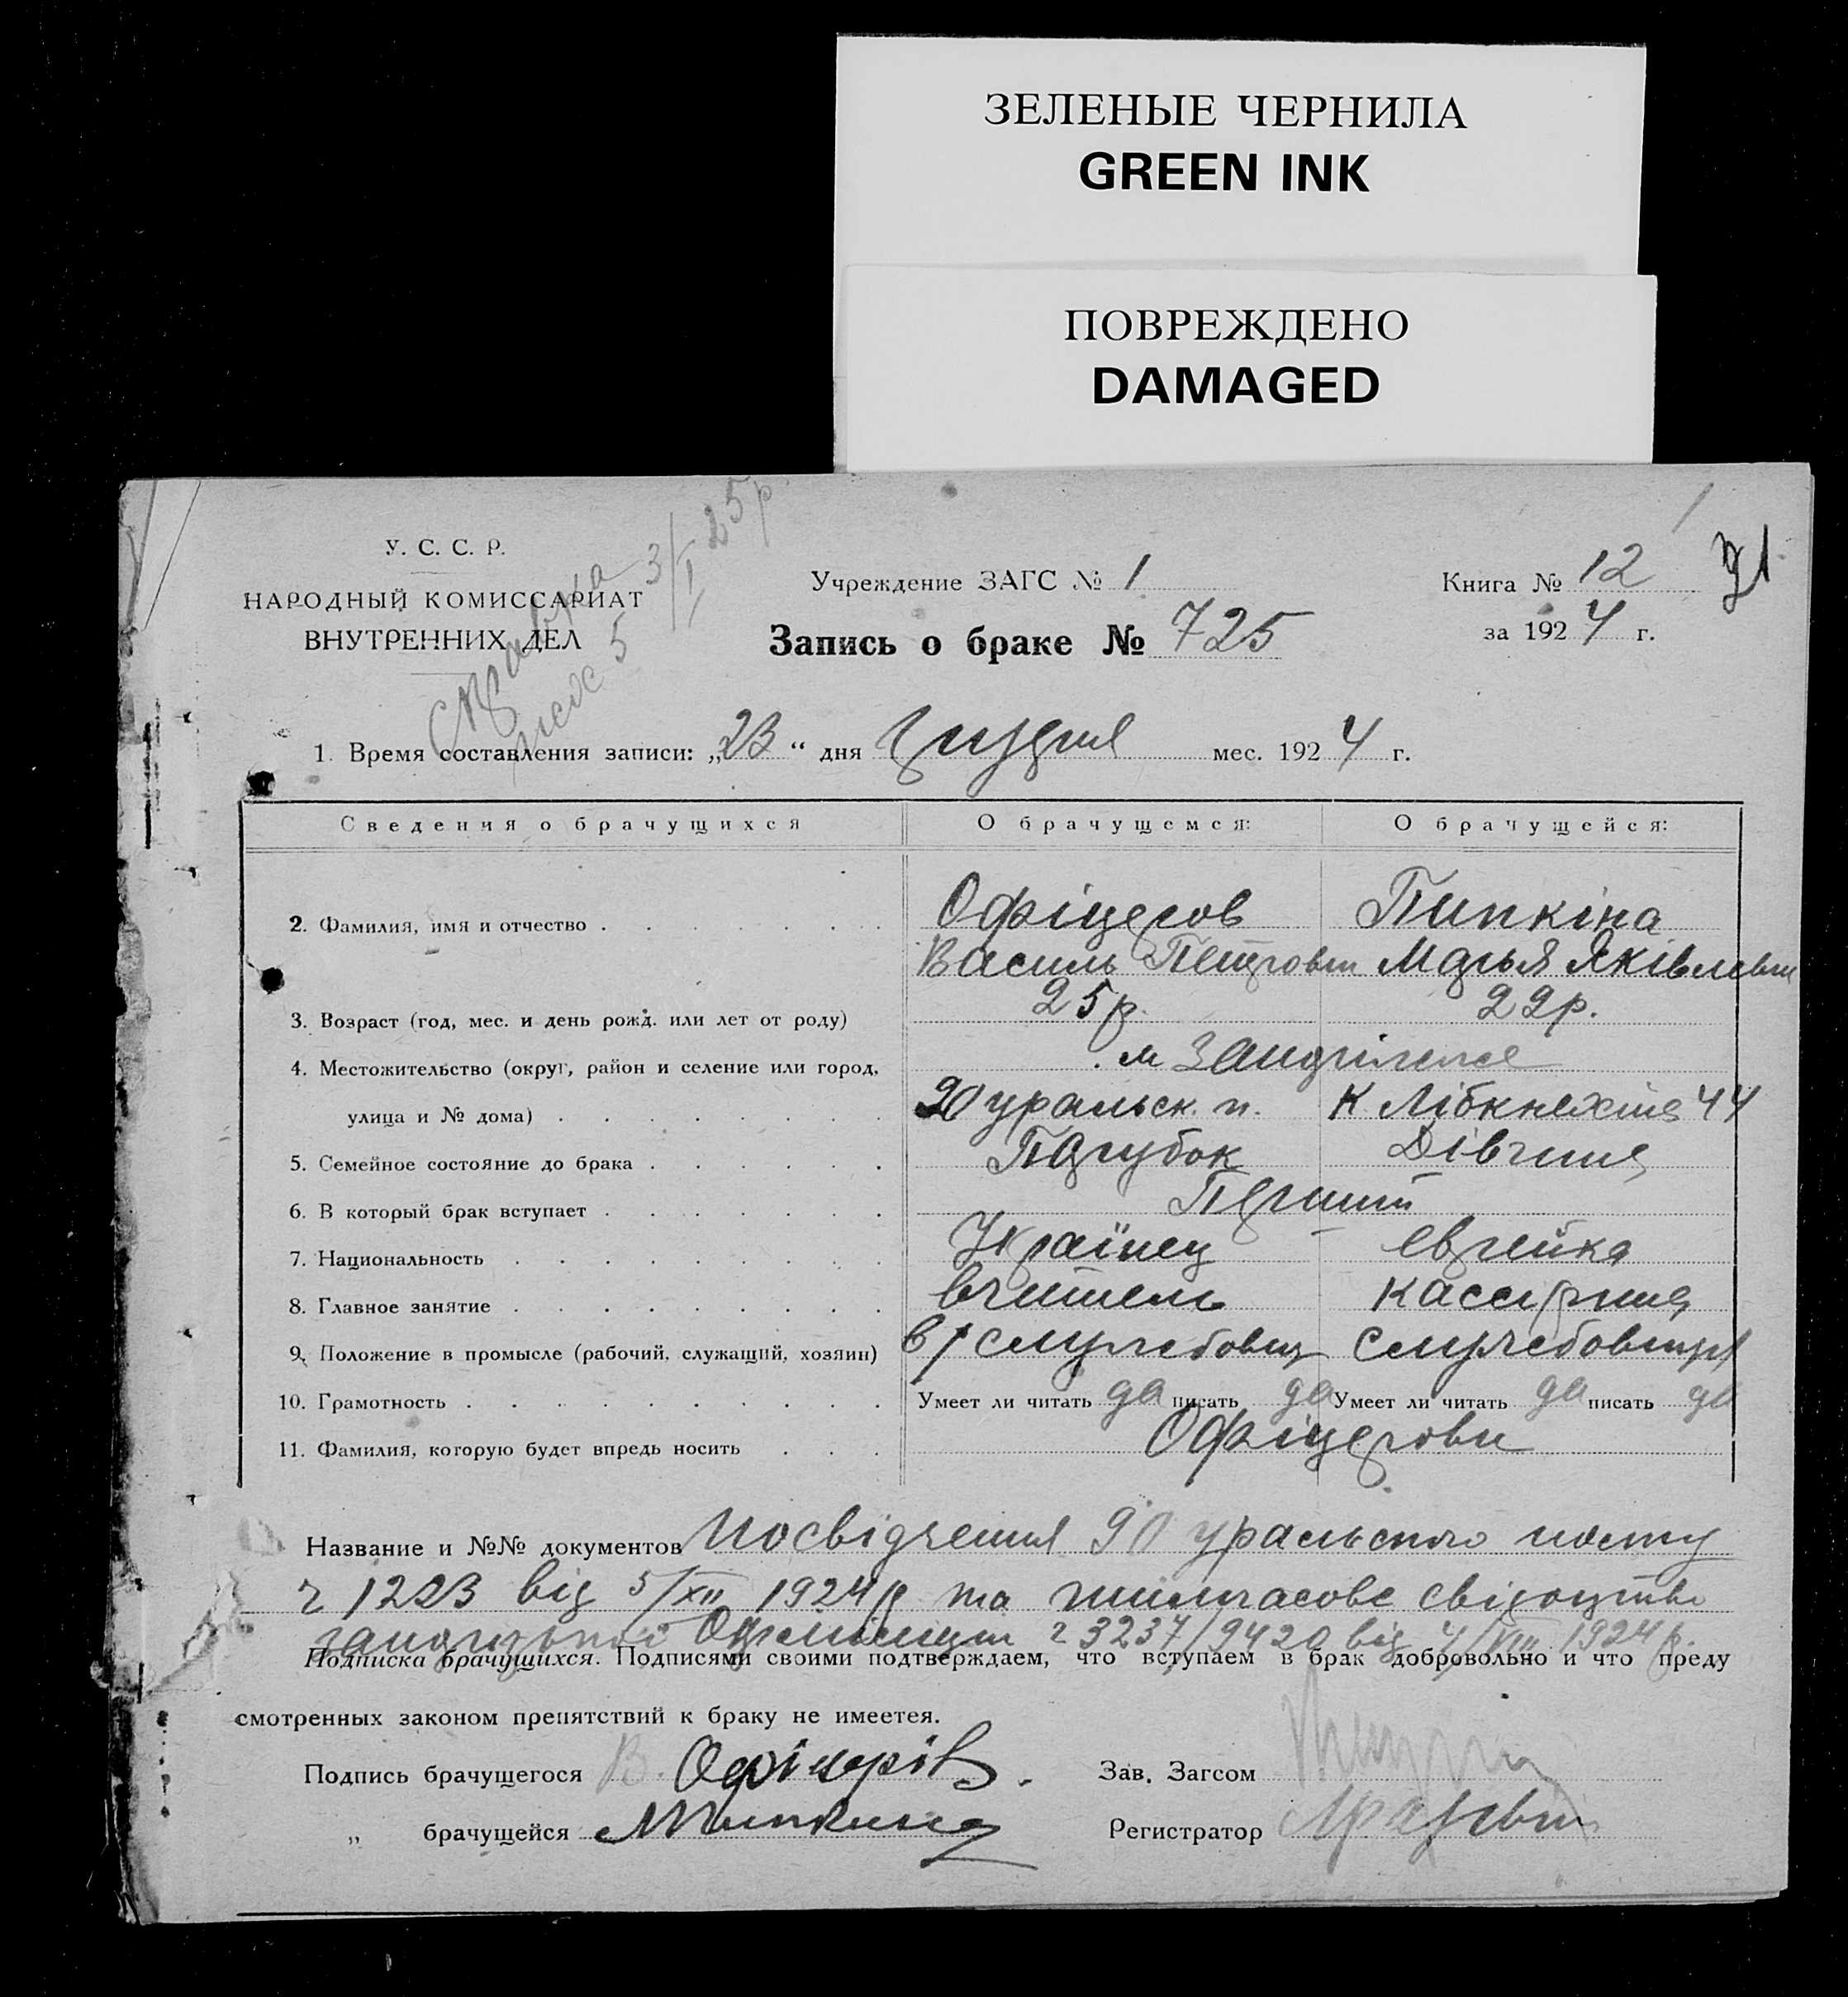 ЗЕЛЕНЫЕ ЧЕРНИЛА
GREEN INK
ПОВРЕЖДЕНО
DAMAGED
У. С. С. Р.
НАРОДНЫЙ КОМИССАРИАТ
ВНУТРЕННИХ ДЕЛ
Справка 3/I 25 р.
5
Учреждение ЗАГС № 1
Запись о браке № 725
Книга № 12
за 1924 г.
1. Время составления записи: „23“ дня грудня мес. 1924 г.
Сведения о брачущихся О брачущемся: О брачущейся:
2. Фамилия, имя и отчество Офіцеров Пипкіна
Василь Петрович Марья Яківлевна
3. Возраст (год, мес. и день рожд. или лет от роду) 25 р. 22 р.
4. Местожительство (округ, район и селение или город, м Запоріжжє
улица и № дома) 90 уральск. п. К Лібкнехта 44
5. Семейное состояние до брака Парубок Дівчина
6. В который брак вступает Перший
7. Национальность Українец еврейка
8. Главное занятие вчитель кассирша
9. Положение в промысле (рабочий, служащий, хозяин) в/служебовец служебовиця
10. Грамотность Умеет ли читать да писать да Умеет ли читать да писать да
11. Фамилия, которую будет впредь носить Офіцерови
Название и №№ документов Посвідчення 90 уральского полку
ч 1223 від 5/XII 1924 р та тимчасове свідоцтво
ч 3237/9420 від 4/VIII 1924 р.
Подписка брачущихся. Подписями своими подтверждаем, что вступаем в брак добровольно и что преду
смотренных законом препятствий к браку не имеетея.
Подпись брачущегося В. Офіцерів. Зав. Загсом
„ брачущейся МПипкина Регистратор